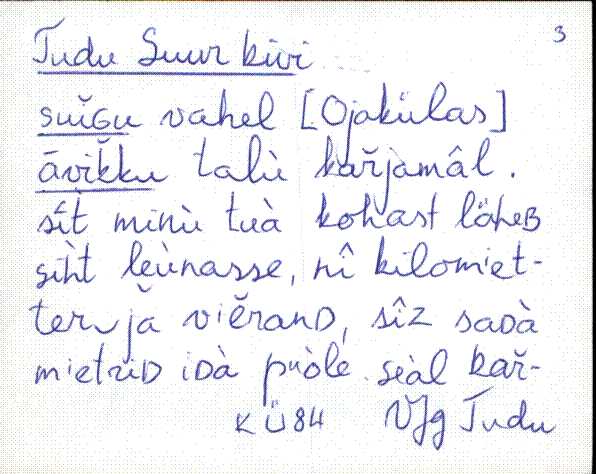 3
Tudu Suur kivi
suĭGu vahel [Ojakülas]
āvikku talù kařjamâl.
sît minù tuà kohast läheB
siht leùnasse, nî kilomiet-
ter jǎ viěranD, sîz saDà
mietriD iDà puòle. seàl kař-
KÜ84 VJg Tudu